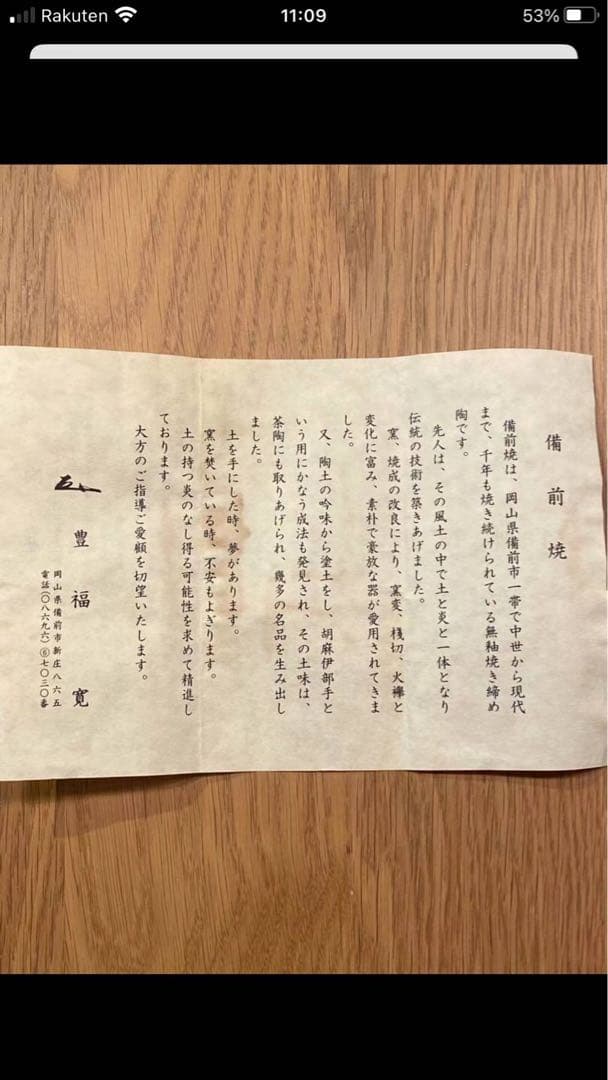 Rakuten
11:09
53%
備前焼
備前焼は、岡山県備前市一帯で中世から現代
まで、千年も焼き続けられている無釉焼き締め
陶です。
先人は、その風土の中で土と炎と一体となり
伝統の技術を築きあげました。
窯、焼成の改良により、窯変、桟切、火襷と
変化に富み、素朴で豪放な器が愛用されてきま
した。
又、陶土の吟味から塗土をし、胡麻伊部手と
いう用にかなう成法も発見され、その土味は、
茶陶にも取りあげられ、幾多の名品を生み出し
ました。
土を手にした時、夢があります。
窯を焚いている時、不安もよぎります。
土の持つ炎のなし得る可能性を求めて精進し
ております。
大方のご指導ご愛顧を切望いたします。
豊福寛
岡山県備前市新庄八六五
電話(〇八六九六)⑥七〇三〇番